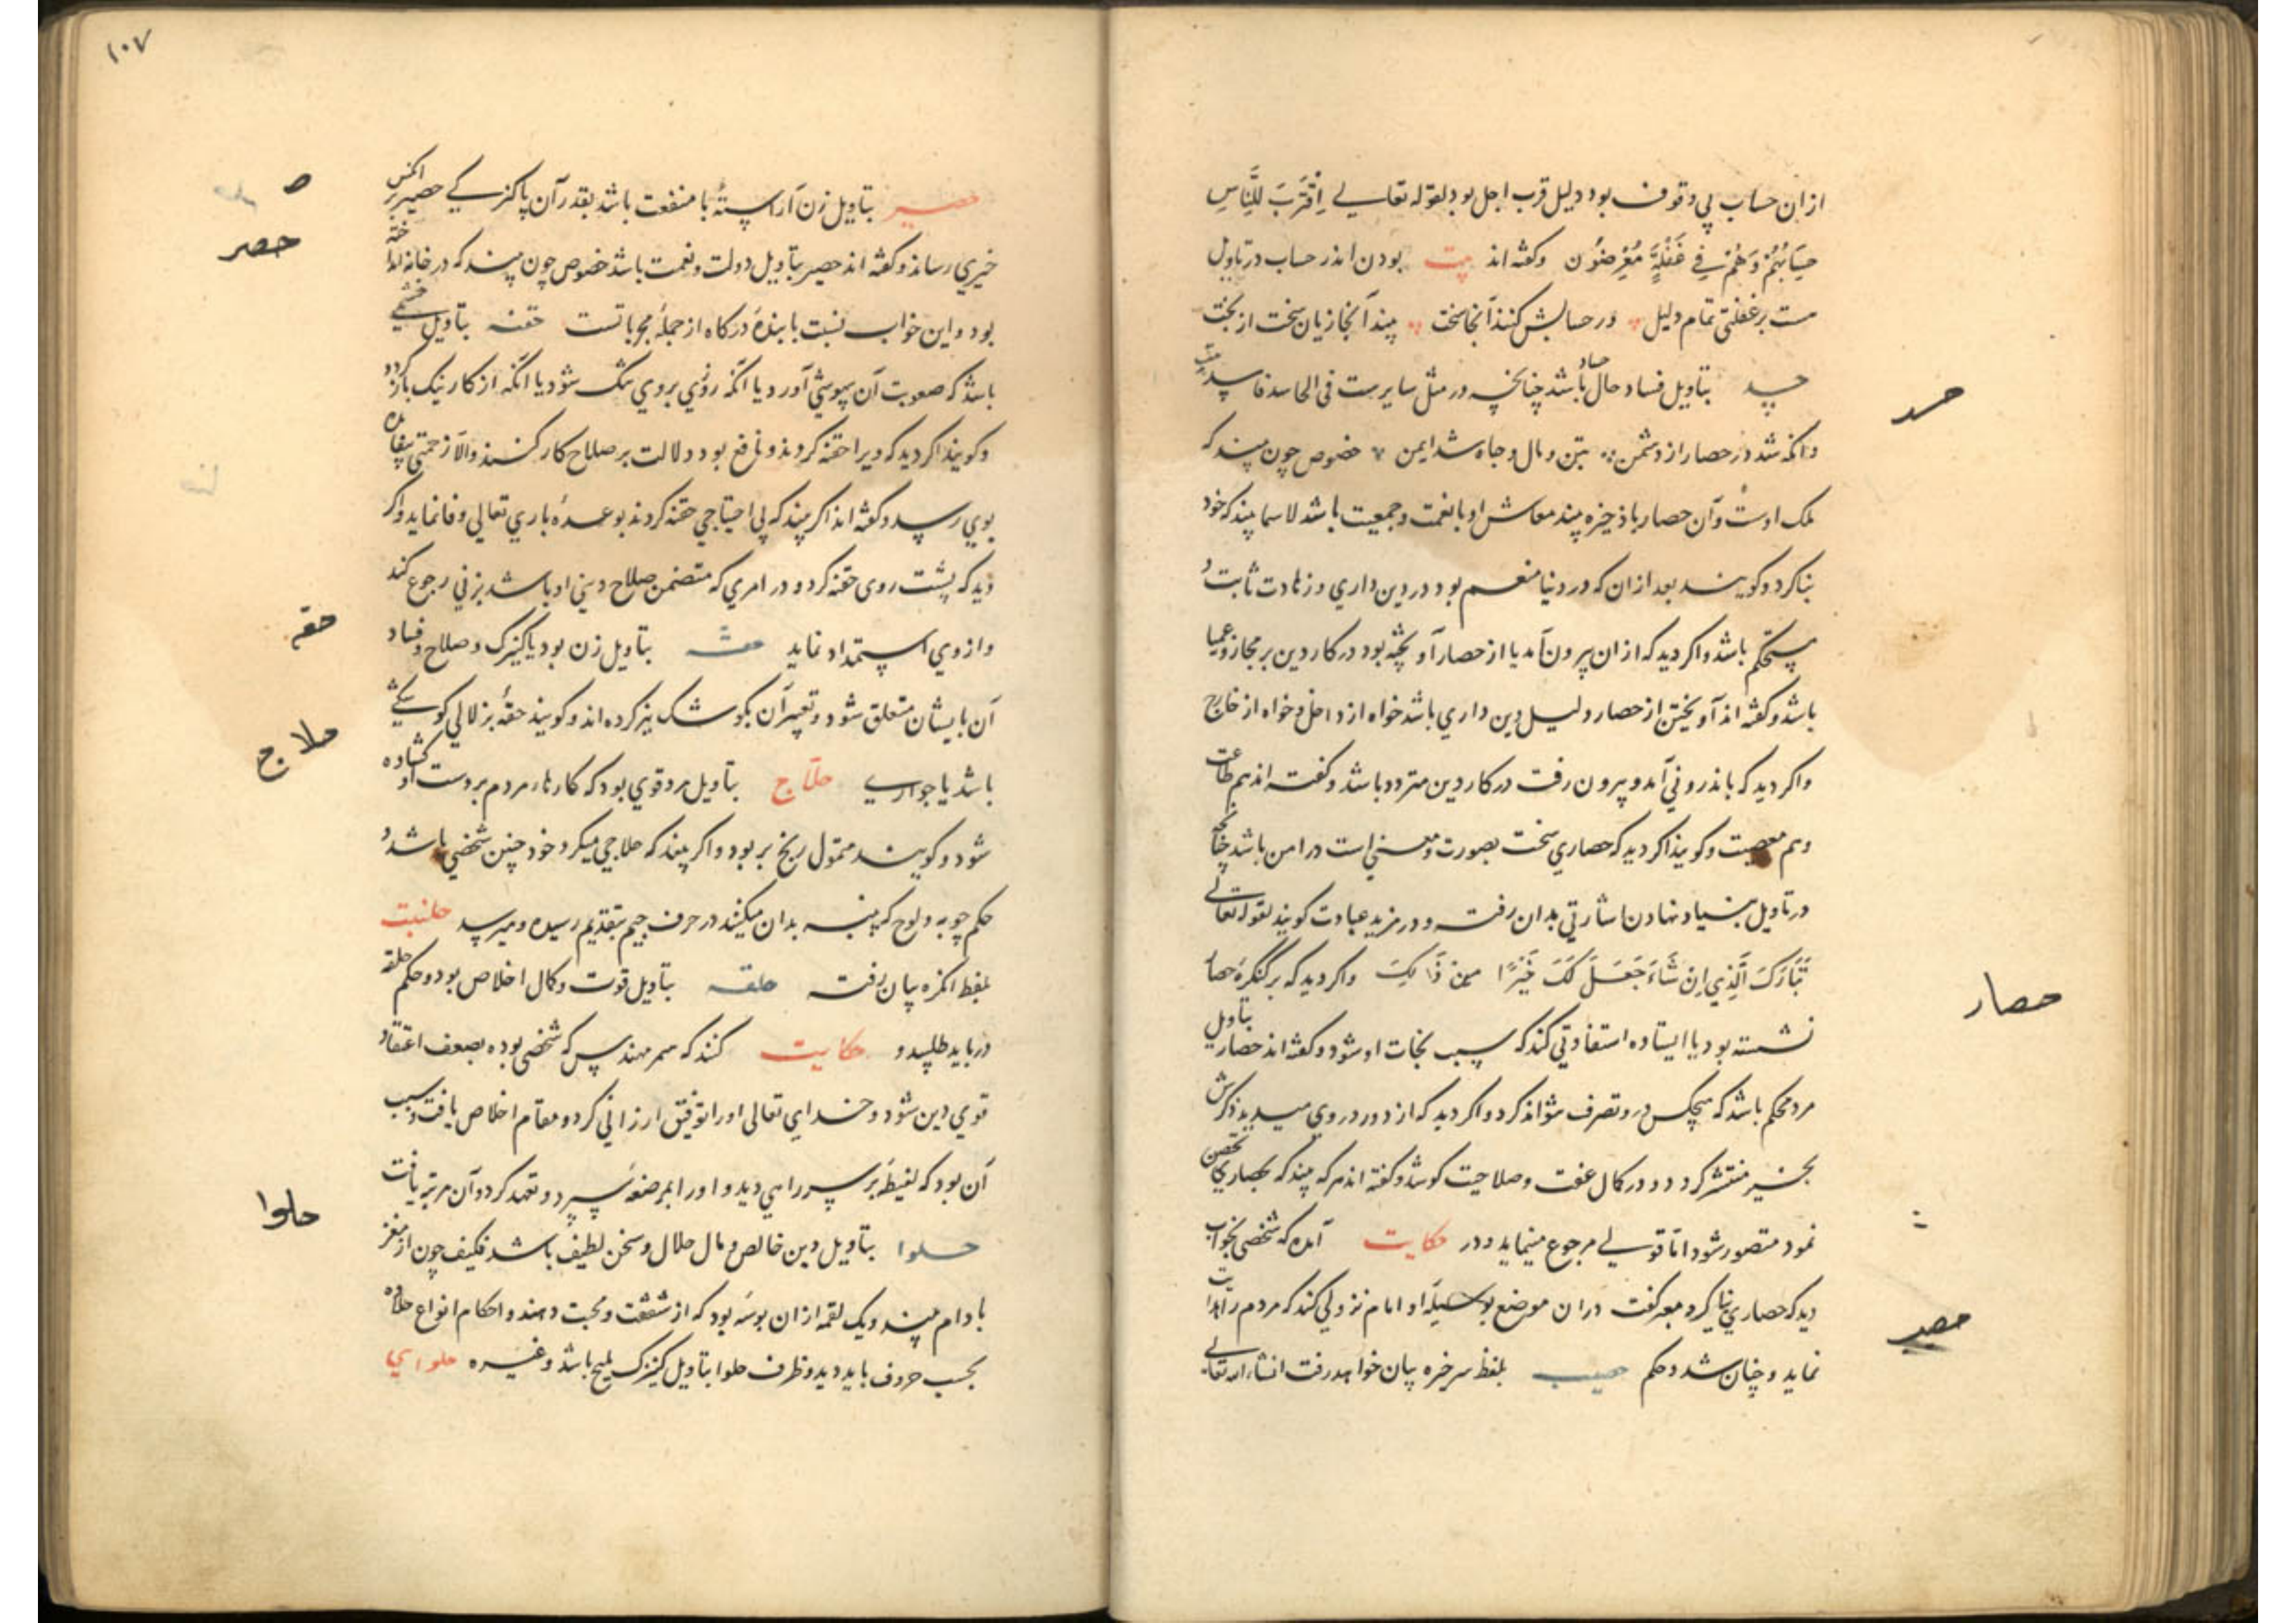 ازان حساب بی وقوف بود دلیل قرب اجل بود لقوله تعالی اِقْتَرَبَ لِلنَّاسِ
حِسَابُهُمْ وَهُمْ فِی غَفْلَةٍ مُعْرِضُون وکفته اند بیت بودن اندر حساب در تاویل
هست بر غفلتی تمام دلیل ور حسابش کنند آنجا سخت بیند آنجا زیان سخت از بخت
حسد بتاویل فساد حال حساد باشد چنانچه در مثل سایرست فی الحاسد فاسد
وانکه شد در حصار از دشمن بتن ومال وجاه شد ایمن خصوص چون بیند که
ملک اوست وآن حصار باذخیره بیند معاش او بانعمت وجمعیت باشد لاسیما بیند که خود
بنا کرد وکویند بعد ازان که در دنیا منعم بود در دین داری وزهادت ثابت و
مستحکم باشد واکر دید که ازان بیرون آمد یا از حصار آویخته بود در کار دین بر مجاز
باشد وکفته اند آویختن از حصار دلیل دین داری باشد خواه از داخل وخواه از خارج
واکر دید که باندرونی آمد وبیرون رفت در کار دین متردد باشد وکفته اند هم طاعت
وهم معصیت وکویند اکر دید که حصاری سخت بصورت ومعنی است در امن باشد چنانچه
در تاویل بنیاد نهادن اشارتی بدان رفت ودر مزید عبادت کویند لقوله تعالی
تَبَارَكَ الَّذِي اِنْ شَاءَ جَعَلَ لَكَ خَيْرًا مِنْ ذَالِكَ واکر دید که بر کنکرهٔ حصار
نشسته بود یا ایستاده استفادتی کند که سبب نجات او شود وکفته اند حصار بتاویل
مرد محکم باشد که هیچکس در وتصرف نتواند کرد واکر دید که از دور در وی میدید ذکرش
بخیر منتشر کردد ودر کمال عفت وصلاحیت کوشد وکفته اند هر که بیند که بحصاری تحصن
نمود منصور شود اما قولی مرجوع مینماید ودر حکایت آمده که شخصی بخواب
دید که حصاری بنا کرد معبر کفت دران موضع بوسیلهٔ او امام نزولی کند که مردم را هدایت
نماید وچنان شد وحکم حصیب بلفظ سرخزه بیان خواهد رفت انشاء الله تعالی
حسد
حصار
حصیر
۱۰۷
حصیر بتاویل زن آراستهٔ با منفعت باشد بقدر آن پاکیزکی حصیر بر آنکس
خیری رساند وکفته اند حصیر بتاویل دولت ونعمت باشد خصوص چون بیند که در خانه انداخته
بود واین خواب نسبت با بندهٔ درکاه از جملهٔ مجرباتست حقنه بتاویل خشمی
باشد که صعوبت آن بیهوشی آورد یا آنکه روزی بروی تنک شود یا آنکه از کار نیک باز کردد
وکویند اکر دید که ویرا حقنه کردند ونافع بود دلالت بر صلاح کار کنند والا زحمتی بیفایده
بوی رسد وکفته اند اکر بیند که بی احتیاجی حقنه کردند بوعدهٔ باری تعالی وفا نماید واکر
دید که پشت روی حقنه کرد ودر امری که متضمن صلاح دینی او باشد بزنی رجوع کند
وازوی استمداد نماید حقه بتاویل زن بود یا کنیزک وصلاح وفساد
آن بایشان متعلق شود وتعبیر آن بکوشک نیز کرده اند وکویند حقهٔ بزلالی کوشکی
باشد یا جواری حلاج بتاویل مرد قوی بود که کارهاء مردم بر دست او کشاده
شود وکویند متمول رنج بر بود واکر بیند که حلاجی میکرد خود چنین شخصی باشد و
حکم چوبه ولوح که پنبه بدان میکنند در حرف جیم بتقدیم رسیده ومیرسد حلتیت
بلفظ انکزه بیان رفت حلقه بتاویل قوت وکمال اخلاص بود وحکم حلقه
در باید طلبید و حکایت کنند که سمر مهندس که شخصی بوده بضعف اعتقاد
قوی دین شود وخدای تعالی اورا توفیق ارزانی کرد ومقام اخلاص یافت وسبب
آن بود که لقیطهٔ بر سر راهی دید واورا بمرضعه سپرد وتعهد کرد وآن مرتبه یافت
حلوا بتاویل دین خالص ومال حلال وسخن لطیف باشد فکیف چون از مغز
بادام بیند ویک لقمه ازان بوسه بود که از شفقت ومحبت دهند واحکام انواع حلاوه
بحسب حروف باید دید وظرف حلوا بتاویل کنیزک ملیح باشد وغیره حلوایی
حصر
حقه
حلاج
حلوا